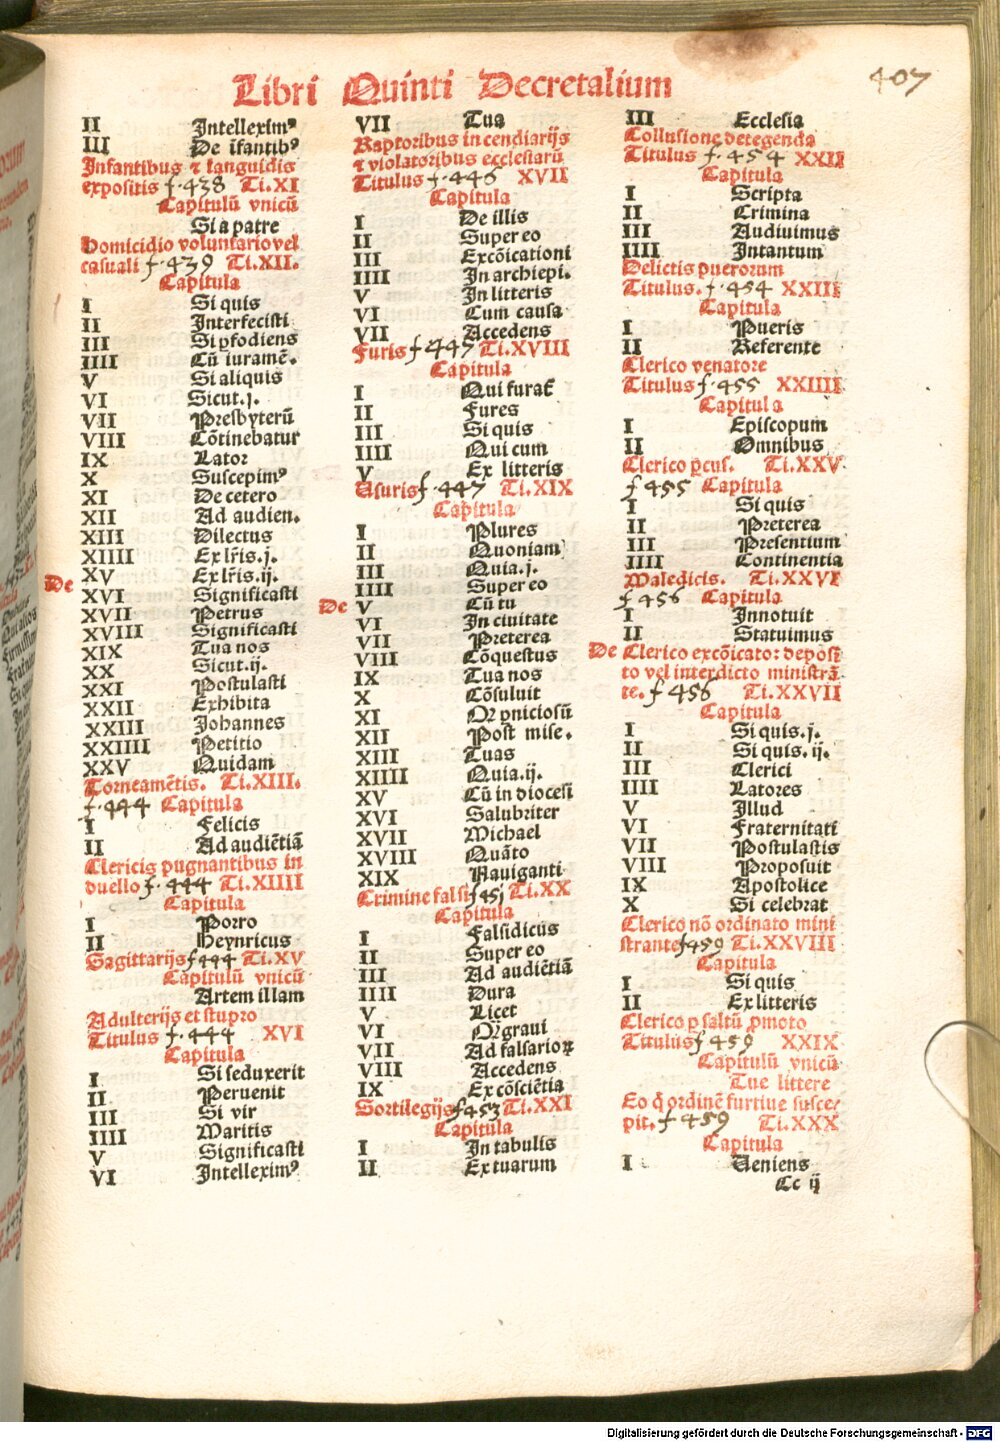 407
Libri Quinti Decretalium
II Intelleximꝰ
III De ifantibꝰ
Infantibus ⁊ languidis
expositis f. 438 Ti.XI
Capitulū vnicū
Si a patre
Homicidio voluntario vel
casuali f. 439 Ti.XII.
Capitula
I Si quis
II Interfecisti
III Si pfodiens
IIII Cū iuramē.
V Si aliquis
VI Sicut.j.
VII Presbyterū
VIII Cōtinebatur
IX Lator
X Suscepimꝰ
XI De cetero
XII Ad audien.
XIII Dilectus
XIIII Ex lr̃is.j.
De XV Ex lr̃is.ij.
XVI Significasti
XVII Petrus
XVIII Significasti
XIX Tua nos
XX Sicut.ij.
XXI Postulasti
XXII Exhibita
XXIII Johannes
XXIIII Petitio
XXV Quidam
Torneamētis. Ti.XIII.
f. 444 Capitula
I Felicis
II Ad audiētiā
Clericis pugnantibus in
duello f. 444 Ti.XIIII
Capitula
I Porro
II Heynricus
Sagittarijs f 444 Ti.XV
Capitulū vnicū
Artem illam
Adulterijs et stupro
Titulus f. 444 XVI
Capitula
I Si seduxerit
II Peruenit
III Si vir
IIII Maritis
V Significasti
VI Intelleximꝰ
VII Tua
Raptoribus in cendiarijs
⁊ violatoribus ecclesiarū
Titulus f. 446 XVII
Capitula
I De illis
II Super eo
III Excōicationi
IIII In archiepi.
V In litteris
VI Cum causa
VII Accedens
Furis f 447 Ti.XVIII
Capitula
I Qui furat̃
II Fures
III Si quis
IIII Qui cum
V Ex litteris
Usuris f. 447 Ti.XIX
Capitula
I Plures
II Quoniam
III Quia.j.
IIII Super eo
De V Cū tu
VI In ciuitate
VII Preterea
VIII Cōquestus
IX Tua nos
X Cōsuluit
XI Qꝛ pniciosū
XII Post mise.
XIII Tuas
XIIII Quia.ij.
XV Cū in diocesi
XVI Salubriter
XVII Michael
XVIII Quāto
XIX Nauiganti
Crimine falsi f 451 Ti.XX
Capitula
I Falsidicus
II Super eo
III Ad audiētiā
IIII Dura
V Licet
VI Qꝛ graui
VII Ad falsarioꝝ
VIII Accedens
IX Ex cōsciētia
Sortilegijs f 453 Ti.XXI
Capitula
I In tabulis
II Ex tuarum
III Ecclesia
Collusione detegenda
Titulus f. 454 XXII
Capitula
I Scripta
II Crimina
III Audiuimus
IIII Intantum
Delictis puerorum
Titulus. f. 454 XXIII
Capitula
I Pueris
II Referente
Clerico venatore
Titulus f. 455 XXIIII
Capitula
I Episcopum
II Omnibus
Clerico pcus. Ti.XXV
f 455 Capitula
I Si quis
II Preterea
III Presentium
IIII Continentia
Maledicis. Ti.XXVI
f 456 Capitula
I Innotuit
II Statuimus
De Clerico excōicato: deposi
to vel interdicto ministrā
te. f 456 Ti.XXVII
Capitula
I Si quis.j.
II Si quis.ij.
III Clerici
IIII Latores
V Illud
VI Fraternitati
VII Postulastis
VIII Proposuit
IX Apostolice
X Si celebrat
Clerico nō ordinato mini
strante f 459 Ti.XXVIII
Capitula
I Si quis
II Ex litteris
Clerico p saltū pmoto
Titulus f 459 XXIX
Capitulū vnicū
Tue littere
Eo q̄ ordinē furtiue susce/
pit. f 459 Ti.XXX
Capitula
I Ueniens
Cc ij
Digitalisierung gefördert durch die Deutsche Forschungsgemeinschaft - DFG